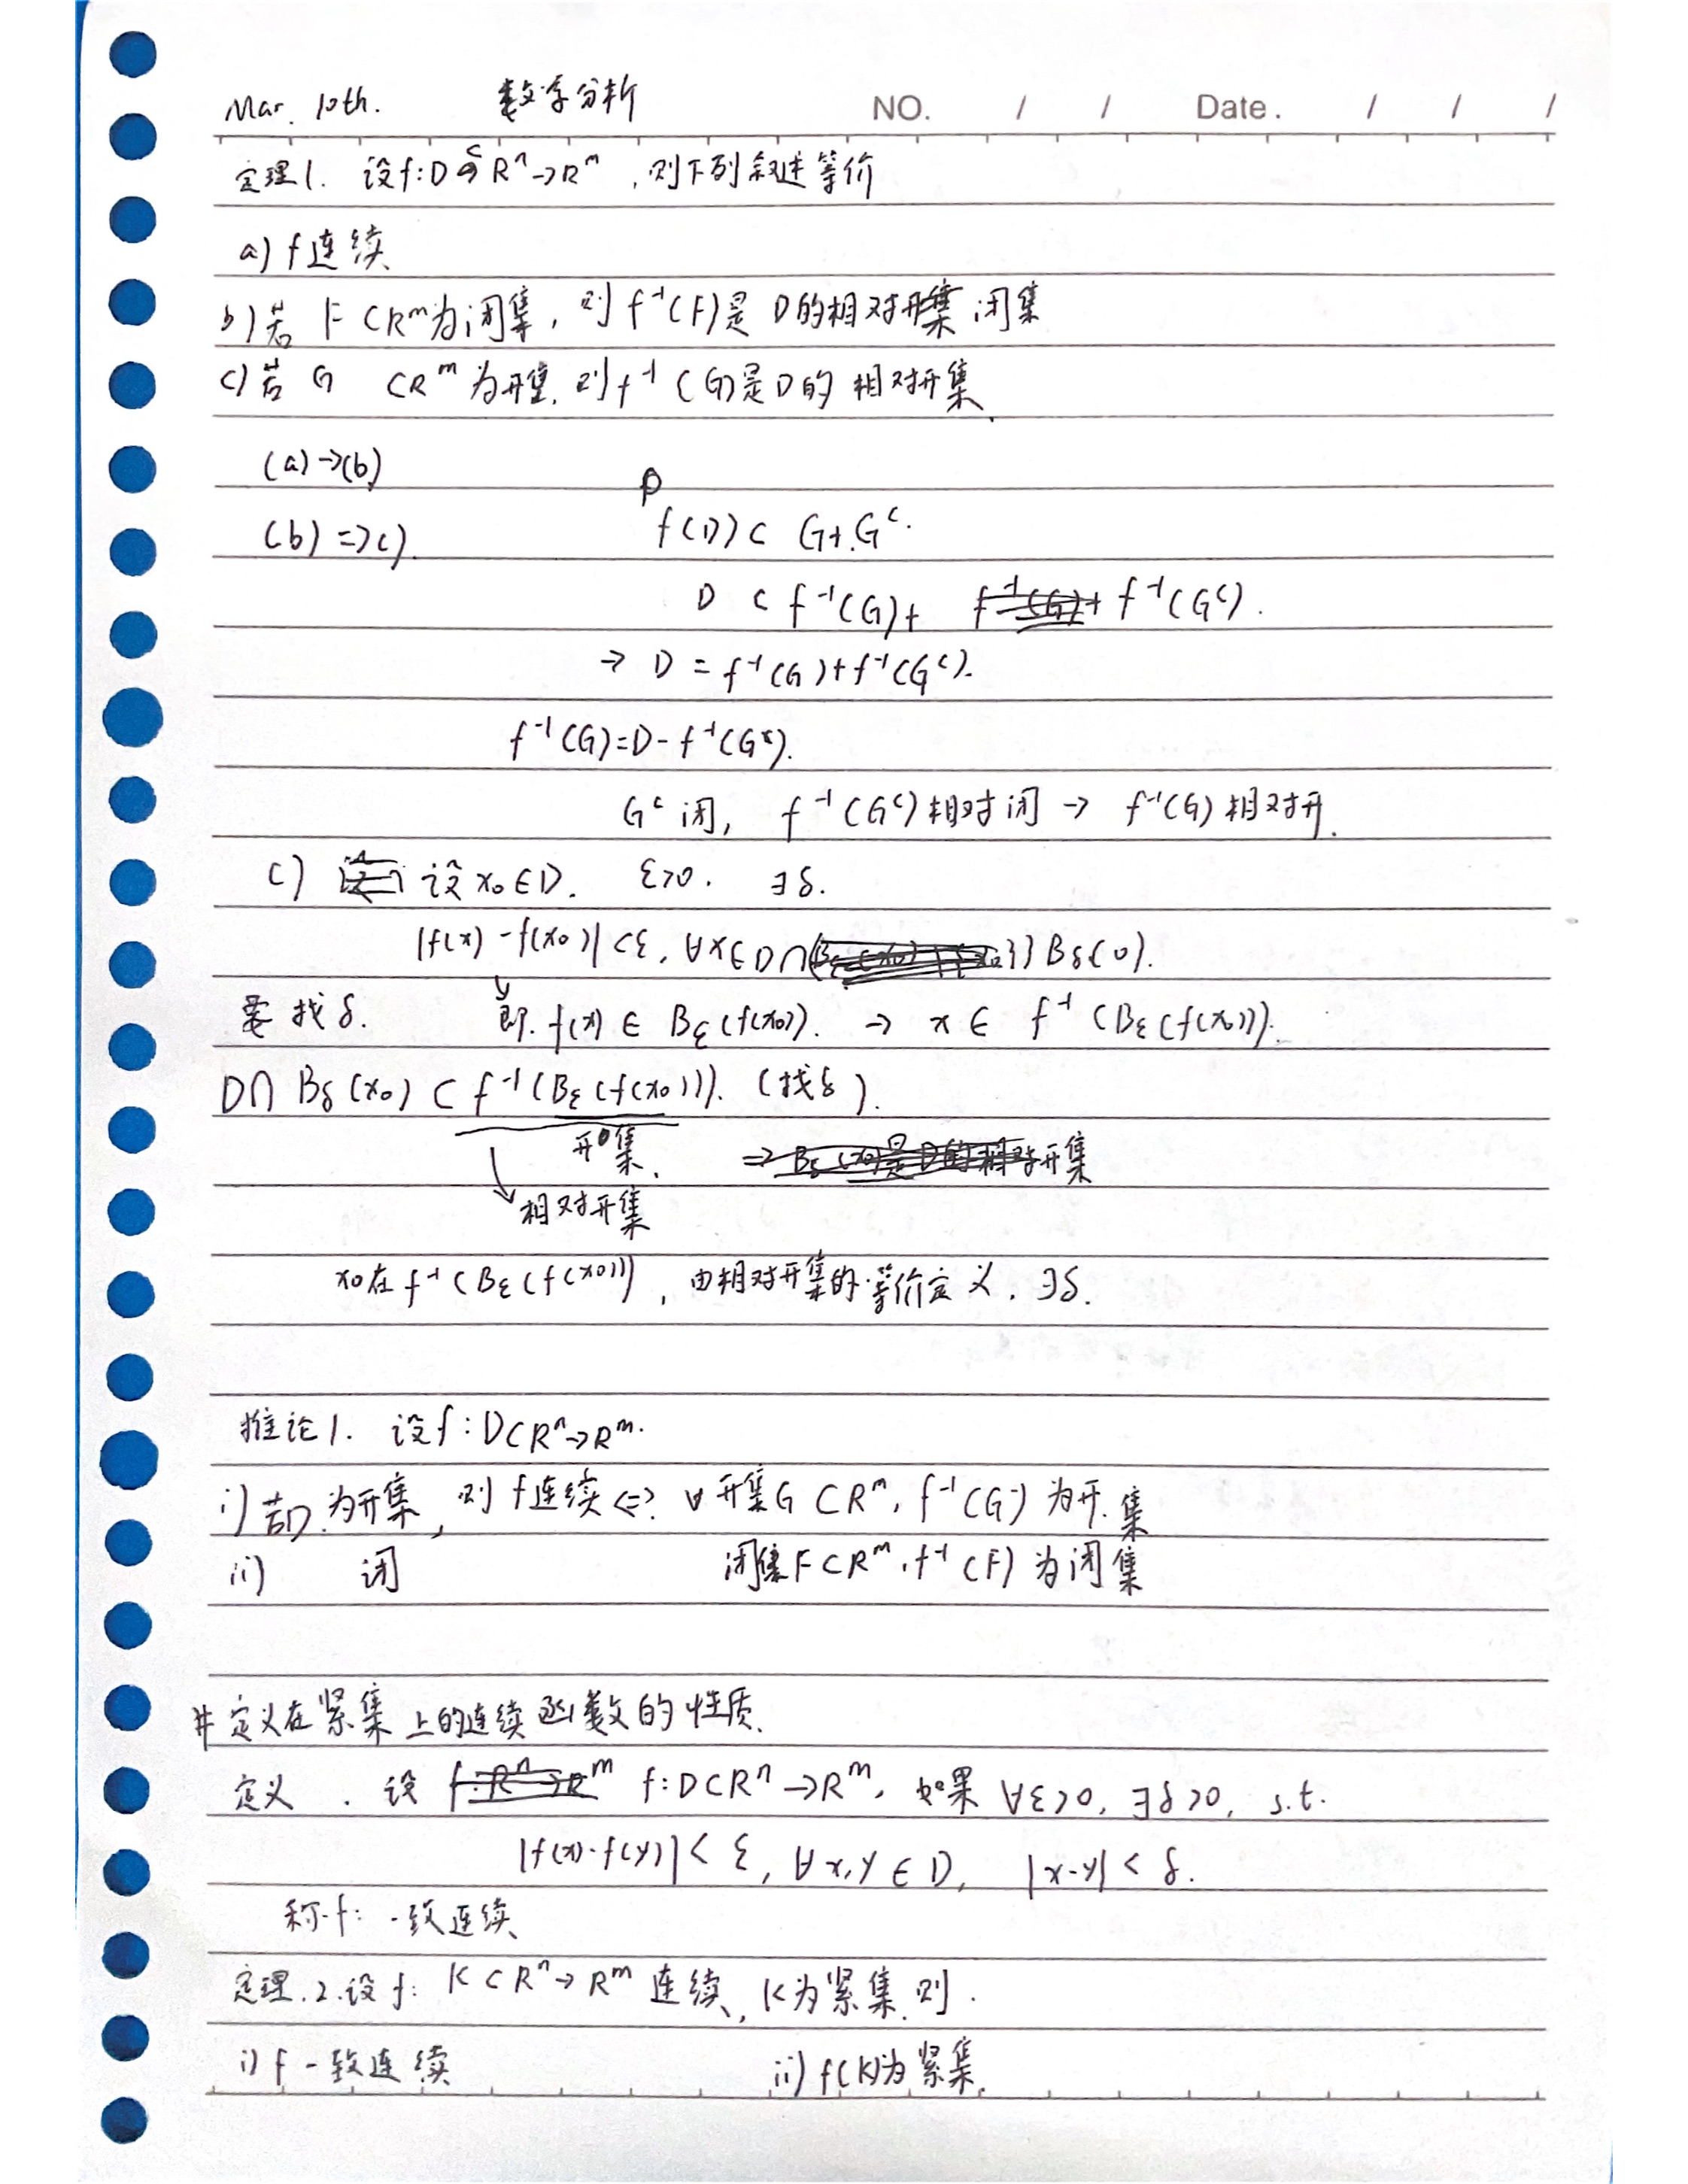 Mar. 10th. 数学分析 NO. / / Date. / / /
定理1. 设f:D⊂Rⁿ→Rᵐ,则下列叙述等价
a) f连续
b)若 F ⊂Rᵐ为闭集,则 f⁻¹(F)是 D的相对闭集
c)若 G ⊂Rᵐ 为开集,则f⁻¹(G)是D的 相对开集.
(a)→(b)
(b)=>c). f(D)⊂ G+Gᶜ.
D ⊂ f⁻¹(G)+ f⁻¹(Gᶜ).
→ D = f⁻¹(G)+f⁻¹(Gᶜ).
f⁻¹(G)=D-f⁻¹(Gᶜ).
Gᶜ闭, f⁻¹(Gᶜ)相对闭 → f⁻¹(G)相对开.
c) 设 x₀∈D. ε>0. ∃δ.
|f(x)-f(x₀)|<ε, ∀x∈D∩ Bδ(0).
要找δ. 即. f(x) ∈ Bε(f(x₀)). → x ∈ f⁻¹(Bε(f(x₀))).
D∩ Bδ(x₀) ⊂ f⁻¹(Bε(f(x₀))). (找δ).
开集. 开集
相对开集
x₀在f⁻¹(Bε(f(x₀))),由相对开集的等价定义,∃δ.
推论1. 设f:D⊂Rⁿ→Rᵐ.
i)若D为开集,则 f连续<=> ∀开集G⊂Rᵐ, f⁻¹(G)为开集
ii) 闭 闭集F⊂Rᵐ, f⁻¹(F)为闭集
#定义在紧集上的连续函数的性质.
定义. 设 f:D⊂Rⁿ→Rᵐ, 如果 ∀ε>0, ∃δ>0, s.t.
|f(x)-f(y)|< ε, ∀x,y∈D, |x-y|< δ.
称f: 一致连续
定理.2.设f: K⊂Rⁿ→Rᵐ 连续, K为紧集.则.
i) f 一致连续 ii) f(K)为紧集.